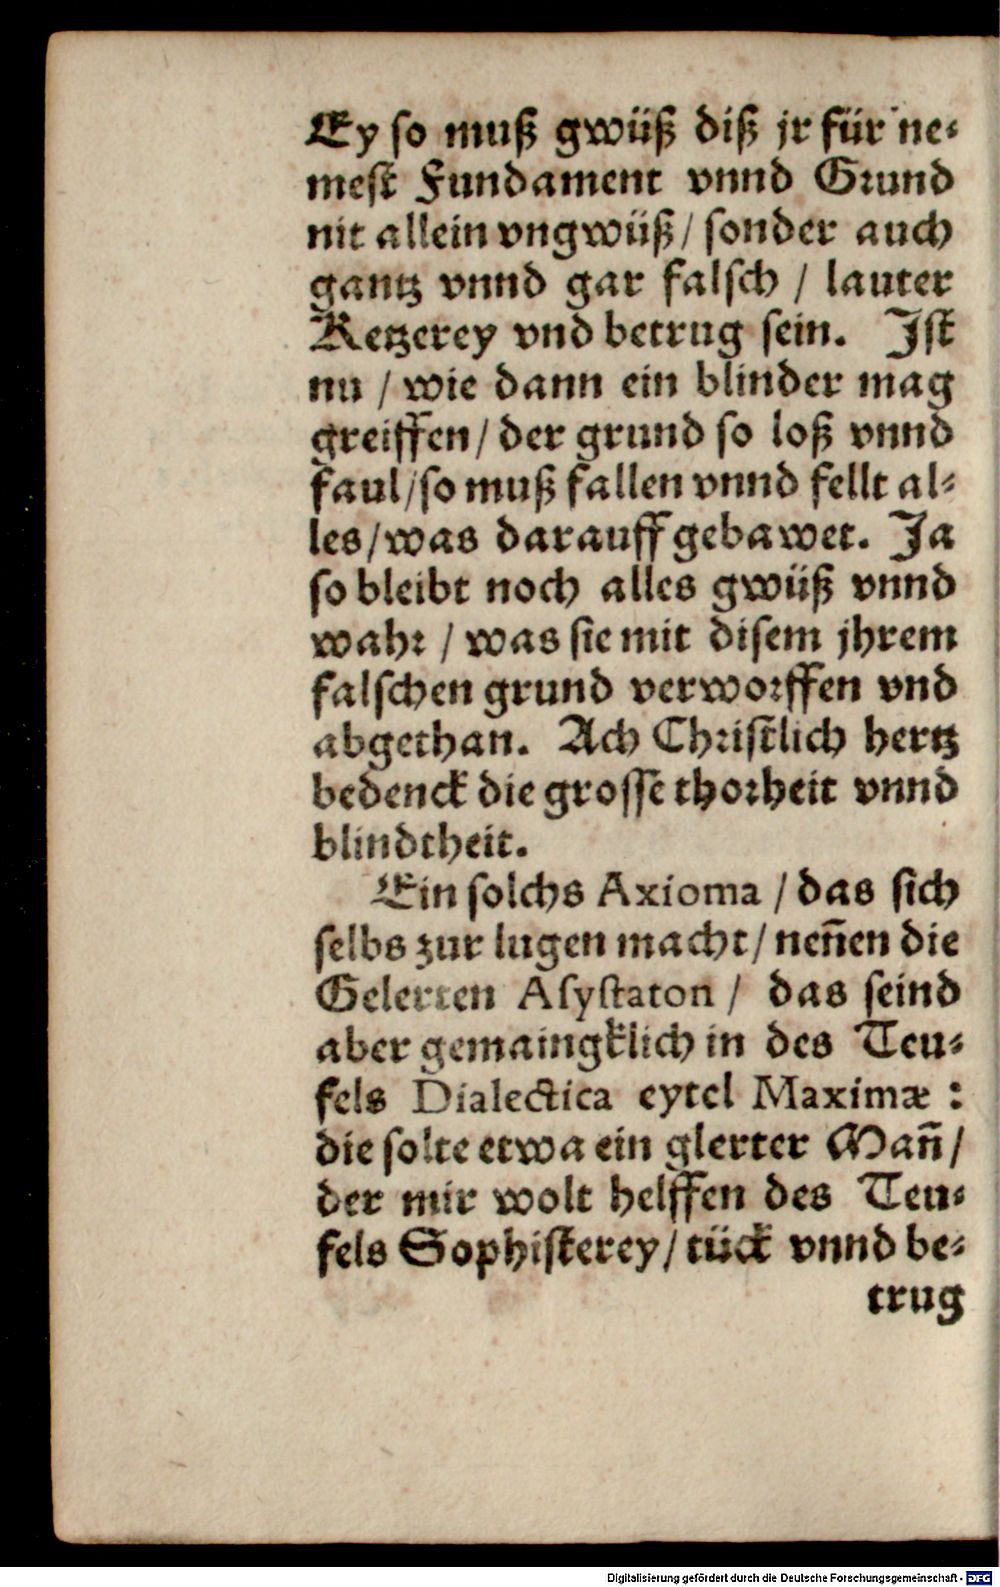 Ey so muß gwüß diß jr für ne⸗
mest Fundament vnnd Grund
nit allein vngwüß / sonder auch
gantz vnnd gar falsch / lauter
Ketzerey vnd betrug sein. Ist
nu / wie dann ein blinder mag
greiffen / der grund so loß vnnd
faul / so muß fallen vnnd fellt al⸗
les / was darauff gebawet. Ja
so bleibt noch alles gwüß vnnd
wahr / was sie mit disem jhrem
falschen grund verworffen vnd
abgethan. Ach Christlich hertz
bedenck die grosse thorheit vnnd
blindtheit.
Ein solchs Axioma / das sich
selbs zur lugen macht / neñen die
Gelerten Asystaton / das seind
aber gemaingklich in des Teu⸗
fels Dialectica eytel Maximæ :
die solte etwa ein glerter Mañ /
der mir wolt helffen des Teu⸗
fels Sophisterey / tück vnnd be⸗
trug
Digitalisierung gefördert durch die Deutsche Forschungsgemeinschaft - DFG